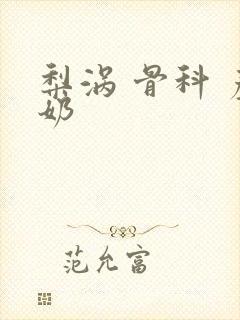 梨涡 骨科
奶
范允富